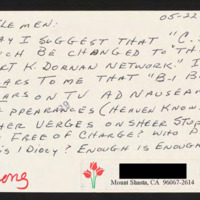 LEMEN: 05-22
AY I SUGGEST THAT "C.
CH BE CHANGED TO "TH
RT K. DORNAN NETWORK." I
ARS TO ME THAT "B-1 B
ARS ON TV AD NAUSEAM
APPEARANCES (HEAVEN KNOW
HER VERGES ON SHEER STU
FREE OF CHARGE? WHO P
IS IDIOCY? ENOUGH IS ENOUGH
ong
Mount Shasta, CA 96067-2614